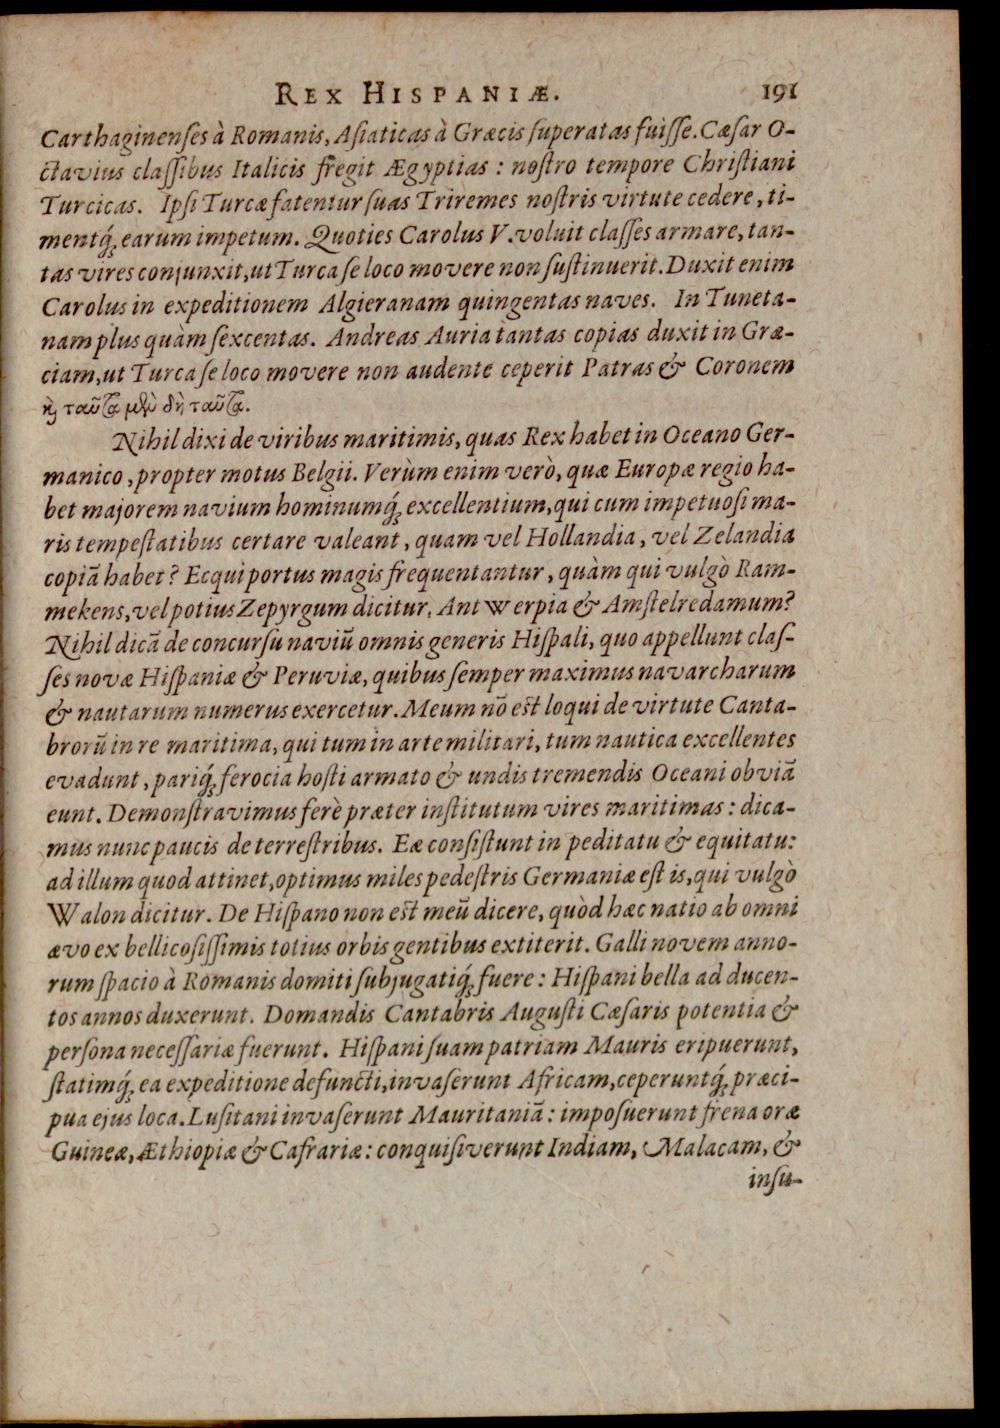 REX HISPANIÆ. 191
Carthaginenſes à Romanis, Aſiaticas à Græcis ſuperatas fuiſſe. Cæſar O-
ctavius claſſibus Italicis fregit Ægyptias: noſtro tempore Chriſtiani
Turcicas. Ipſi Turcæ fatentur ſuas Triremes noſtris virtute cedere, ti-
mentq́; earum impetum. Quoties Carolus V. voluit claſſes armare, tan-
tas vires conjunxit, ut Turca ſe loco movere non ſuſtinuerit. Duxit enim
Carolus in expeditionem Algieranam quingentas naves. In Tuneta-
nam plus quàm ſexcentas. Andreas Auria tantas copias duxit in Græ-
ciam, ut Turca ſe loco movere non audente ceperit Patras & Coronem
ϗ̀ ταῦτα μὲν δὴ ταῦτα.
Nihil dixi de viribus maritimis, quas Rex habet in Oceano Ger-
manico, propter motus Belgii. Verùm enim verò, quæ Europæ regio ha-
bet majorem navium hominumq́; excellentium, qui cum impetuoſi ma-
ris tempeſtatibus certare valeant, quam vel Hollandia, vel Zelandia
copiā habet? Ecqui portus magis frequentantur, quàm qui vulgò Ram-
mekens, vel potius Zepyrgum dicitur, Antwerpia & Amſtelredamum?
Nihil dicā de concurſu naviū omnis generis Hiſpali, quo appellunt claſ-
ſes novæ Hiſpaniæ & Peruviæ, quibus ſemper maximus navarcharum
& nautarum numerus exercetur. Meum nō eſt loqui de virtute Canta-
brorū in re maritima, qui tum in arte militari, tum nautica excellentes
evadunt, pariq́; ferocia hoſti armato & undis tremendis Oceani obviā
eunt. Demonſtravimus ferè præter inſtitutum vires maritimas: dica-
mus nunc paucis de terreſtribus. Eæ conſiſtunt in peditatu & equitatu:
ad illum quod attinet, optimus miles pedeſtris Germaniæ eſt is, qui vulgò
Walon dicitur. De Hiſpano non eſt meū dicere, quòd hæc natio ab omni
ævo ex bellicoſiſſimis totius orbis gentibus extiterit. Galli novem anno-
rum ſpacio à Romanis domiti ſubjugatiq́; fuere: Hiſpani bella ad ducen-
tos annos duxerunt. Domandis Cantabris Auguſti Cæſaris potentia &
perſona neceſſariæ fuerunt. Hiſpani ſuam patriam Mauris eripuerunt,
ſtatimq́; ea expeditione defuncti, invaſerunt Africam, ceperuntq́; præci-
pua ejus loca. Luſitani invaſerunt Mauritaniā: impoſuerunt frena oræ
Guineæ, Æthiopiæ & Cafrariæ: conquiſiverunt Indiam, Malacam, &
inſu-